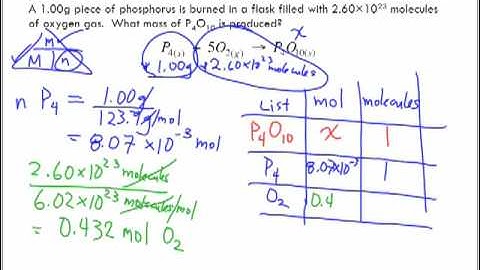 A 1.00g piece of phosphorus is burned in a flask filled with 2.60×10²³ molecules
of oxygen gas. What mass of P₄O₁₀ is produced?
m
M n
x
P₄₍ₛ₎ + 5O₂₍g₎ → P₄O₁₀₍ₛ₎
1.00g 2.60×10²³ molecules
n P₄ = 1.00g
123.9g/mol
= 8.07 ×10⁻³ mol
2.60×10²³ molecules
6.02×10²³ molecules/mol
= 0.432 mol O₂
List mol molecules
P₄O₁₀ x 1
P₄ 8.07×10⁻³ 1
O₂ 0.4